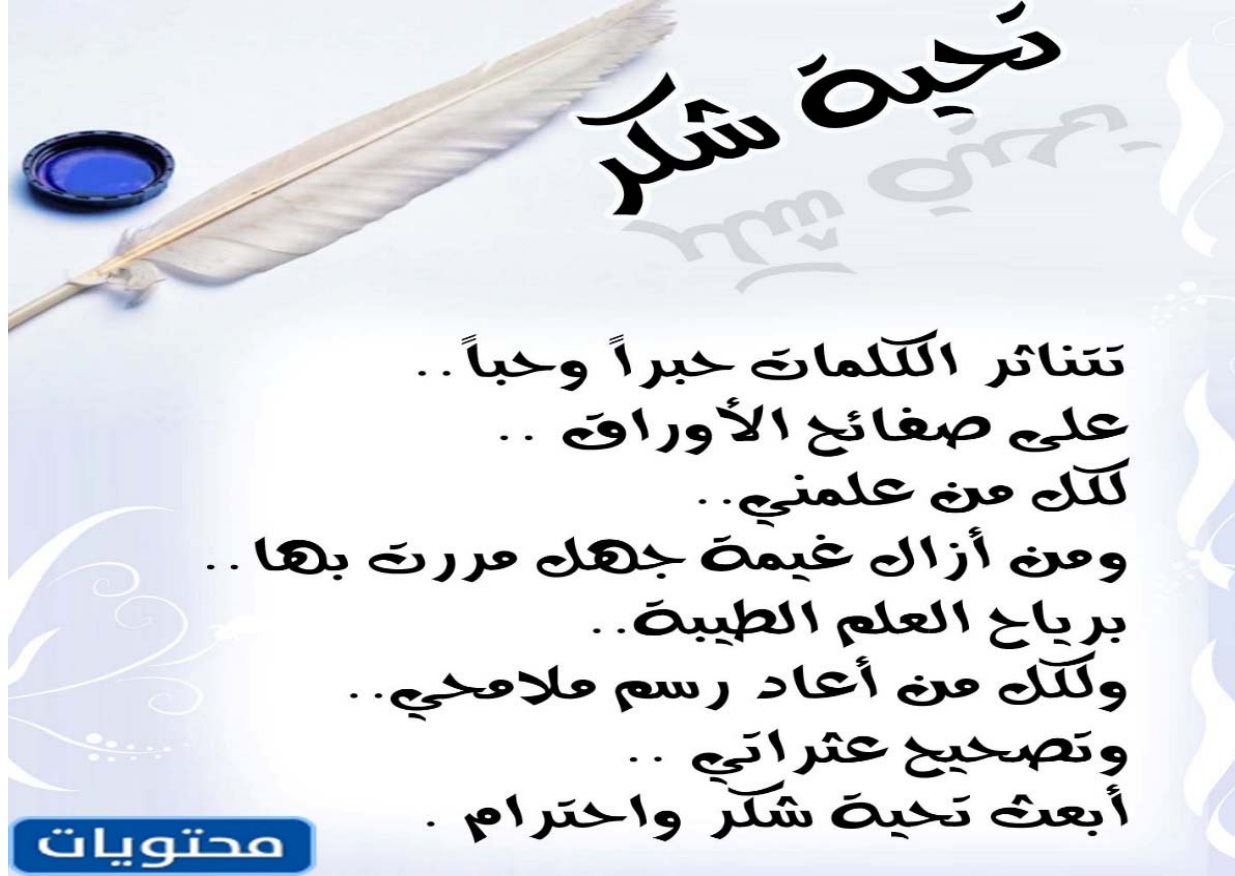 تحية شكر
تتناثر الكلمات حبراً وحباً..
على صفائح الأوراق ..
لكل من علمني..
ومن أزال غيمة جهل مررت بها..
برياح العلم الطيبة..
ولكل من أعاد رسم ملامحي..
وتصحيح عثراتي ..
أبعث تحية شكر واحترام .
محتويات